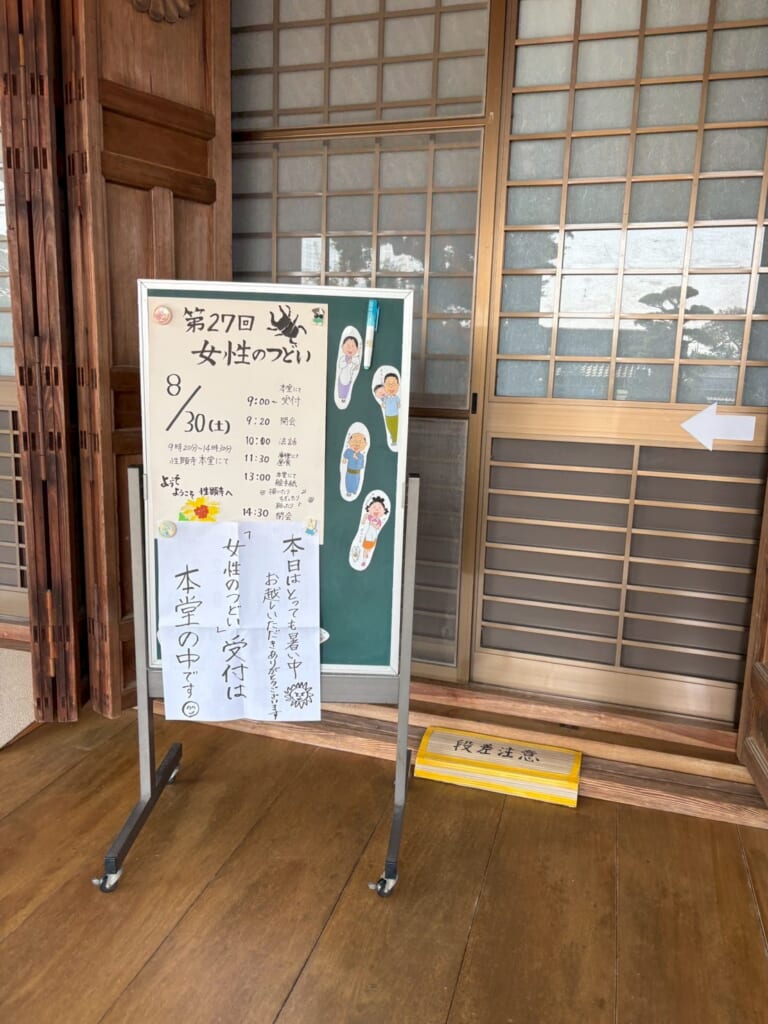 第27回
女性のつどい
8/30(土)
9時20分~14時30分
性顕寺本堂にて
ようそ
ようこそ 性顕寺へ
本堂にて
9:00~受付
9:20 開会
10:00 法話
11:30 昼食
本堂にて
13:00 絵手紙
14:30 閉会
本日はとっても暑い中
お越しいただきありがとうございます
「女性のつどい」受付は
本堂の中です
段差注意